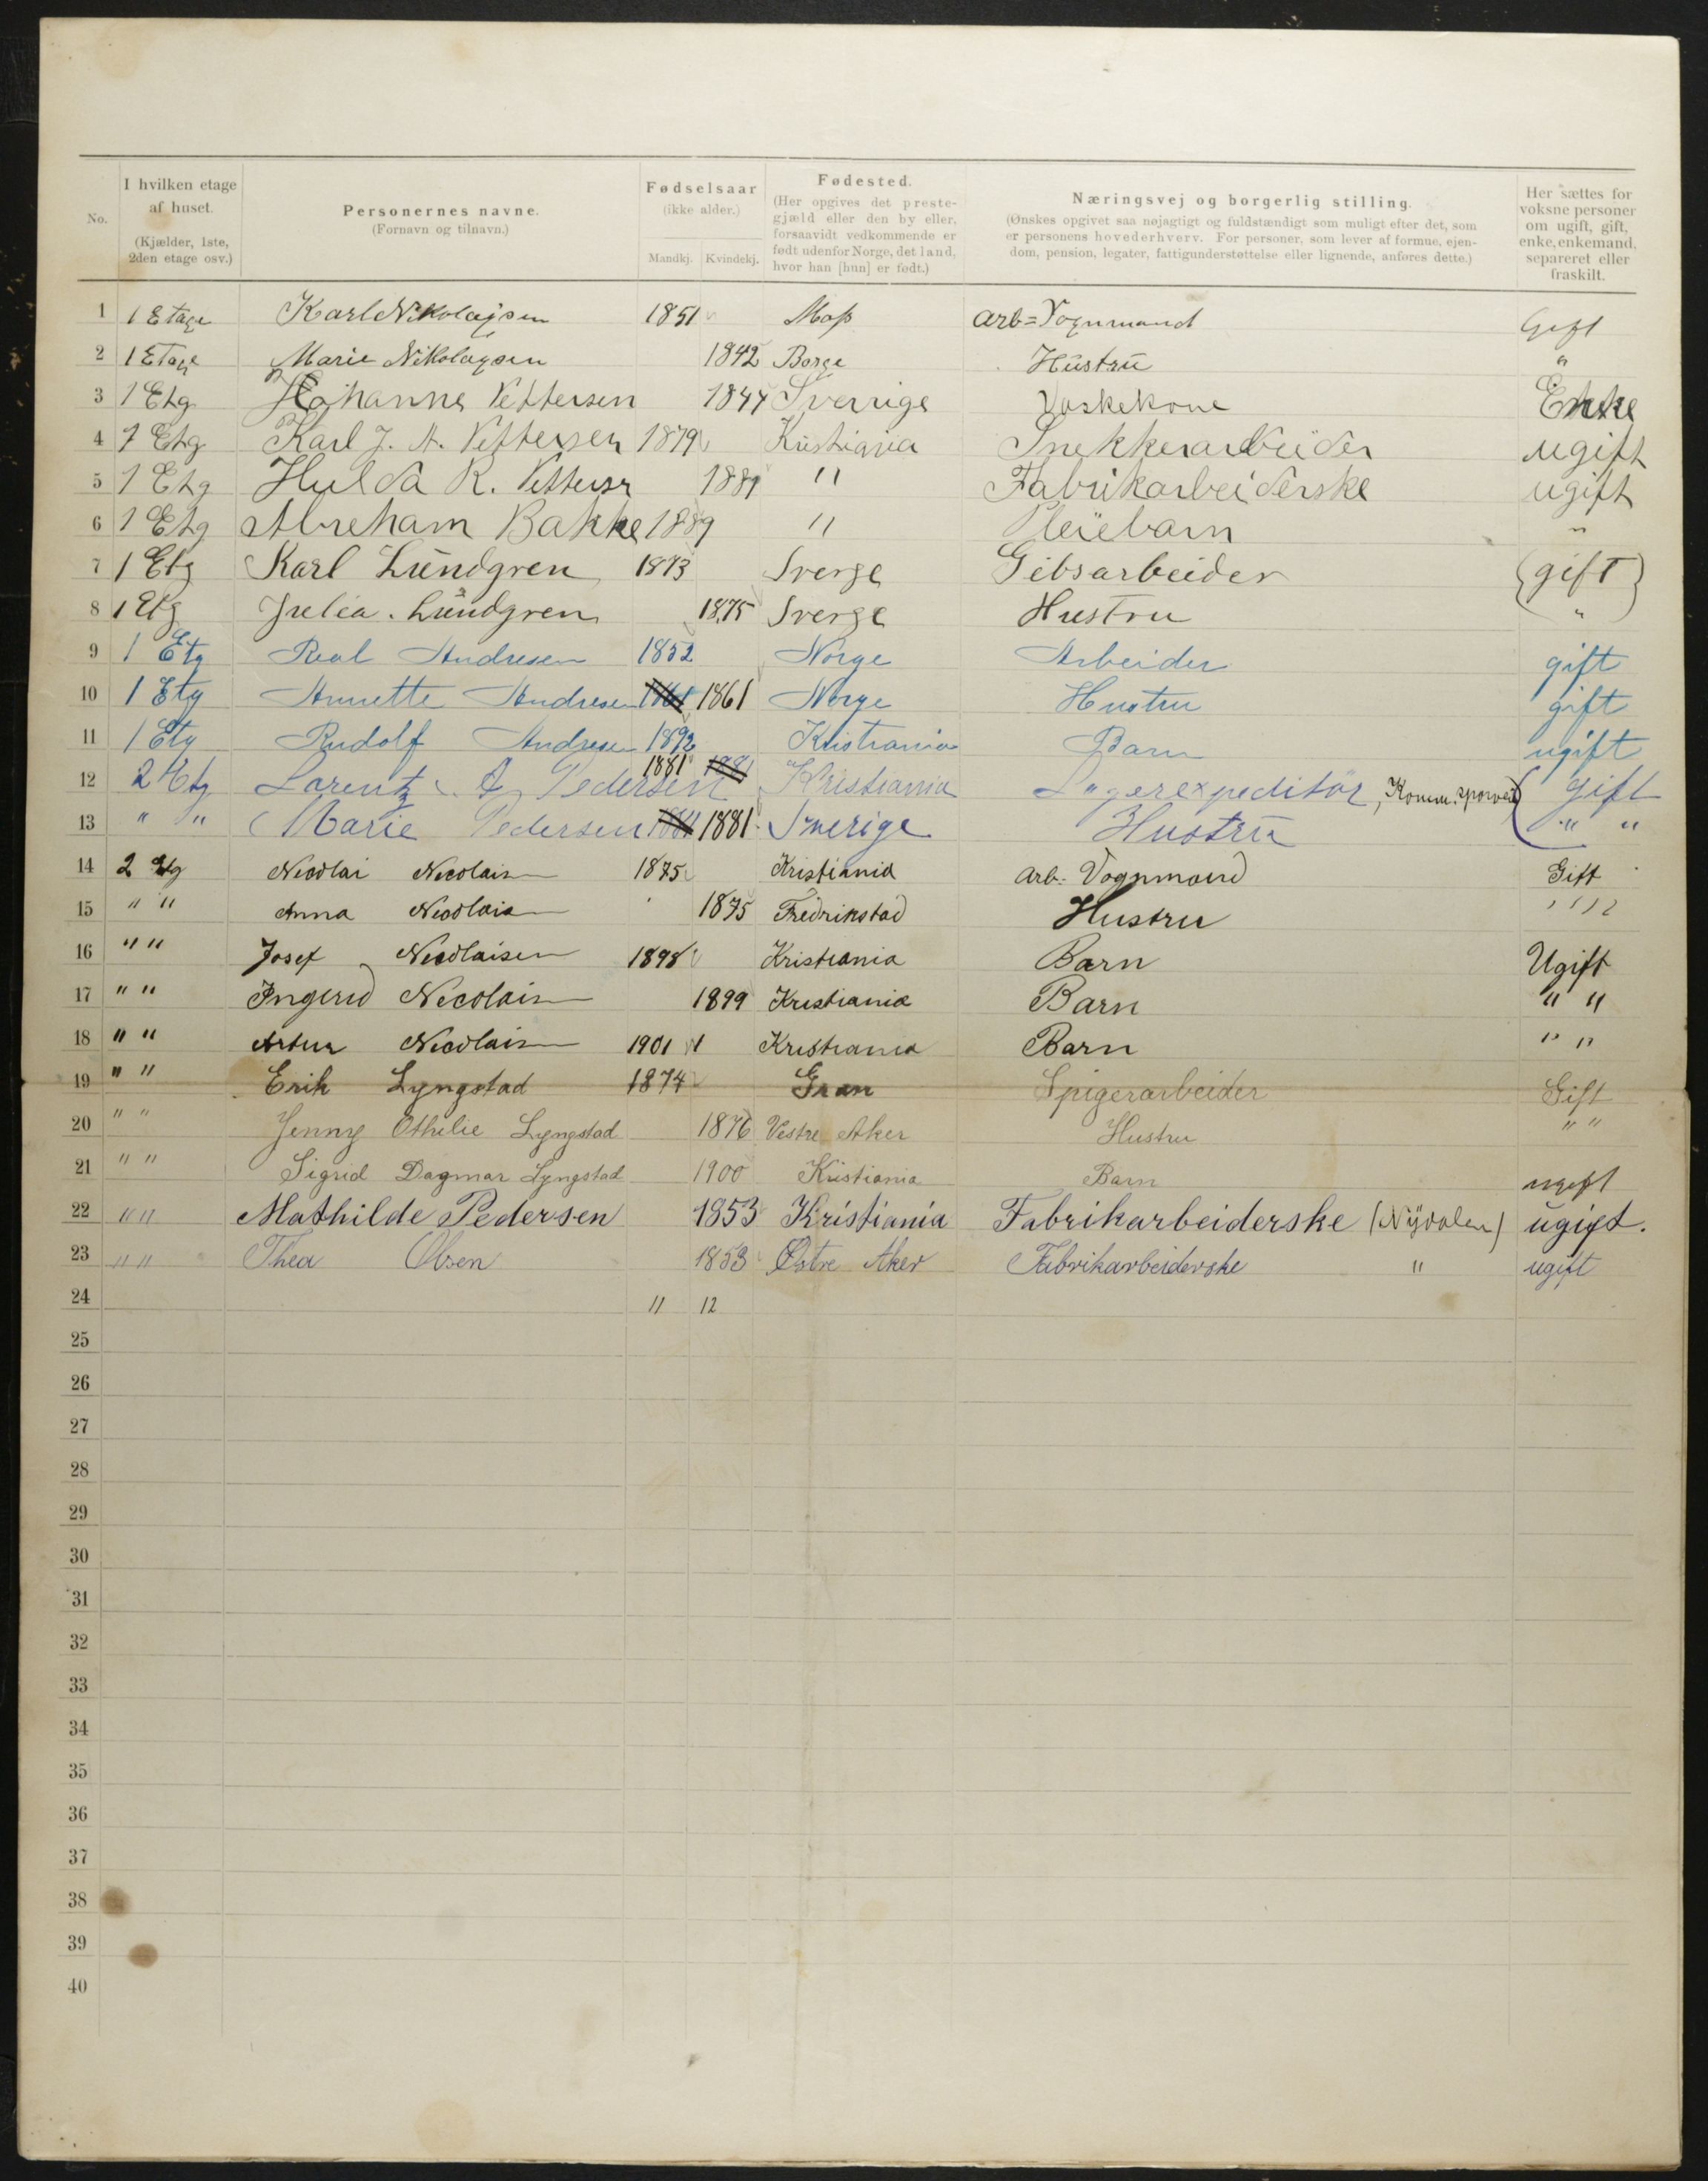 No. I hvilken etage af huset. (Kjælder, 1ste, 2den etage osv.) Personernes navne. (Fornavn og tilnavn.) Fødselsaar (ikke alder.) Mandkj. Kvindekj. Fødested. (Her opgives det prestegjæld eller den by eller, forsaavidt vedkommende er født udenfor Norge, det land, hvor han [hun] er født.) Næringsvej og borgerlig stilling. (Ønskes opgivet saa nøjagtigt og fuldstændigt som muligt efter det, som er personens hovederhverv. For personer, som lever af formue, ejendom, pension, legater, fattigunderstøttelse eller lignende, anføres dette.) Her sættes for voksne personer om ugift, gift, enke, enkemand, separeret eller fraskilt.
1 1 Etage Karl Nikolajsen 1851 Moss arb= Vognmand Gift
2 1 Etage Marie Nikolaysen 1842 Borge Hustru "
3 1 Etg Johanne Pettersen 1844 Sverrige Vaskekone Enke
4 1 Etg Karl J. A. Pettersen 1879 Kristiania Snekkerarbeider ugift
5 1 Etg Hulda R. Pettersen 1881 " Fabrikarbeiderske ugift
6 1 Etg Abreham Bakke 1889 " Pleiebarn "
7 1 Etg Karl Lundgren 1873 Sverge Gibsarbeider {gift}
8 1 Etg Julia. Lundgren 1875 Sverge Hustru "
9 1 Etg Andresen 1852 Norge Arbeider gift
10 1 Etg Annette Andresen 1861 Norge Hustru gift
11 1 Etg Rudolf Andresen 1892 Kristiania Barn ugift
12 2 Etg Lorentz A Pedersen 1881 Kristiania Lagerexpeditør, Komm. sporvei gift
13 " " Marie Pedersen 1881 Sverige Hustru " "
14 2 Etg Nicolai Nicolaisen 1875 Kristiania arb. Vognmand Gift
15 " " Anna Nicolaisen 1875 Fredrikstad Hustru " "
16 " " Josef Nicolaisen 1898 Kristiania Barn Ugift
17 " " Ingerid Nicolaisen 1899 Kristiania Barn " "
18 " " Artur Nicolaisen 1901 Kristiania Barn " "
19 " " Erik Lyngstad 1874 Gran Spigerarbeider Gift
20 " " Jenny Othilie Lyngstad 1876 Vestre Aker Hustru " "
21 " " Sigrid Dagmar Lyngstad 1900 Kristiania Barn ugift
22 " " Mathilde Pedersen 1853 Kristiania Fabrikarbeiderske (Nydalen) ugift.
23 " " Thea Olsen 1853 Østre Aker Fabrikarbeiderske " ugift
24 11 12
25
26
27
28
29
30
31
32
33
34
35
36
37
38
39
40